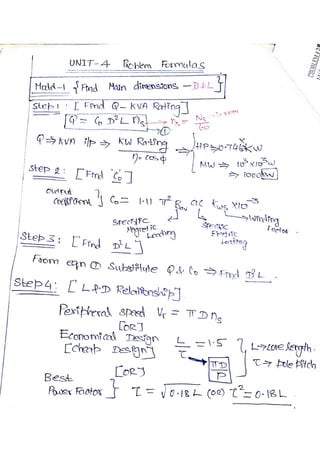 UNIT-4 Problem Formulas
Model-1 { Find Main dimensions - D & L }
Step 1 : [ Find Q - KVA Rating ]
Q = C₀ D²L nₛ → nₛ = Nₛ/60
①
Q ⇒ KVA i/p ⇒ KW Rating / η. cosφ
HP ⇒ 0.746 KW
MW ⇒ 10³ × 10³ W
⇒ 1000 KW
Step 2 : [ Find 'C₀' ]
output coefficient } C₀ = 1.11 π² Bav ac Kws × 10⁻³
Specific Magnetic Loading
Specific Electric Loading
Winding Factor
Step 3 : [ Find D²L ]
From eqn ① Substitute Q & C₀ ⇒ Find D²L
Step 4 : [ L & D Relationship ]
Peripheral speed Vr = π D nₛ
[OR]
Economical Design [Cheap Design] } L/τ = 1.5
πD/P
L → Core length.
τ → pole pitch
[OR]
Best Power Factor } τ = √0.18 L (OR) τ² = 0.18 L